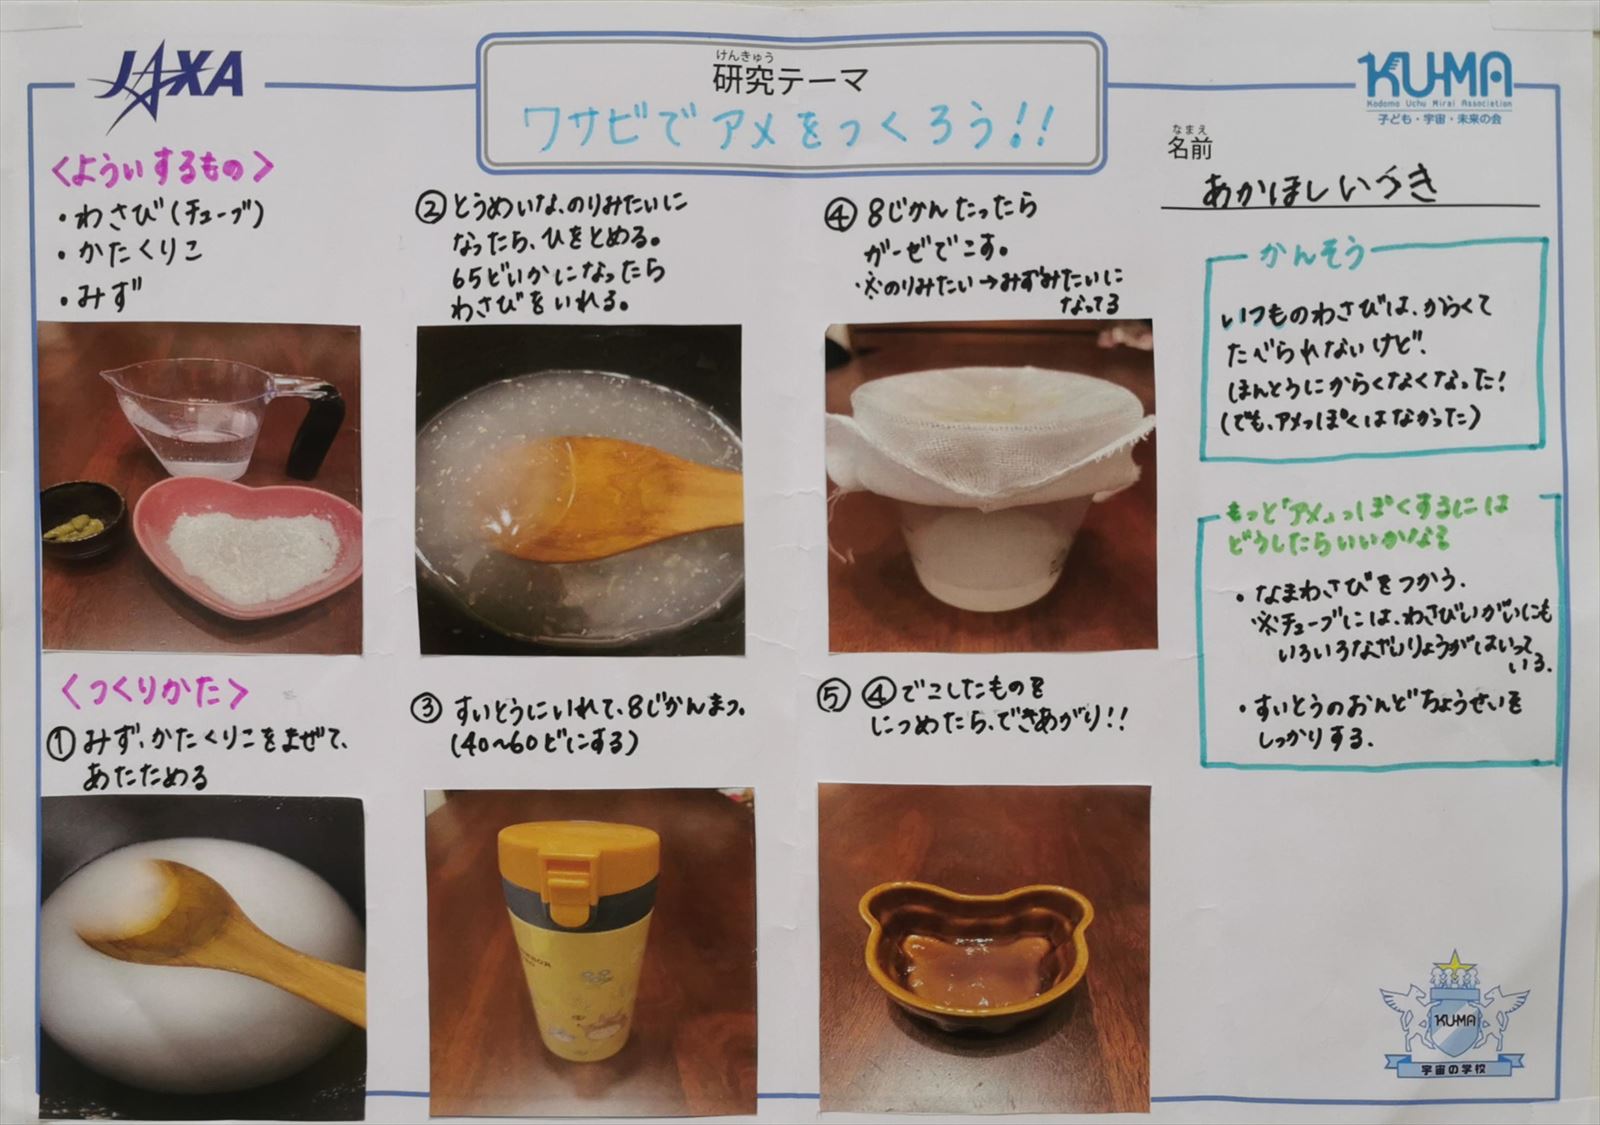 JAXA
けんきゅう
研究テーマ
ワサビでアメをつくろう!!
KU-MA
Kodomo Uchu Mirai Association
子ども・宇宙・未来の会
なまえ
名前
あかほしいつき
<よういするもの>
・わさび(チューブ)
・かたくりこ
・みず
<つくりかた>
①みず、かたくりこをまぜて、
あたためる
②とうめいな、のりみたいに
なったら、ひをとめる。
65どいかになったら
わさびをいれる。
③すいとうにいれて、8じかんまつ。
(40〜60どにする)
④8じかんたったら
ガーゼでこす。
※のりみたい→みずみたいに
なってる
⑤④でこしたものを
につめたら、できあがり!!
かんそう
いつものわさびは、からくて
たべられないけど、
ほんとうにからくなくなった!
(でも、アメっぽくはなかった)
もっと「アメ」っぽくするには
どうしたらいいかなぁ
・なまわさびをつかう。
※チューブには、わさびいがいにも
いろいろなざいりょうがはいって
いる。
・すいとうのおんどちょうせいを
しっかりする。
KU-MA
宇宙の学校